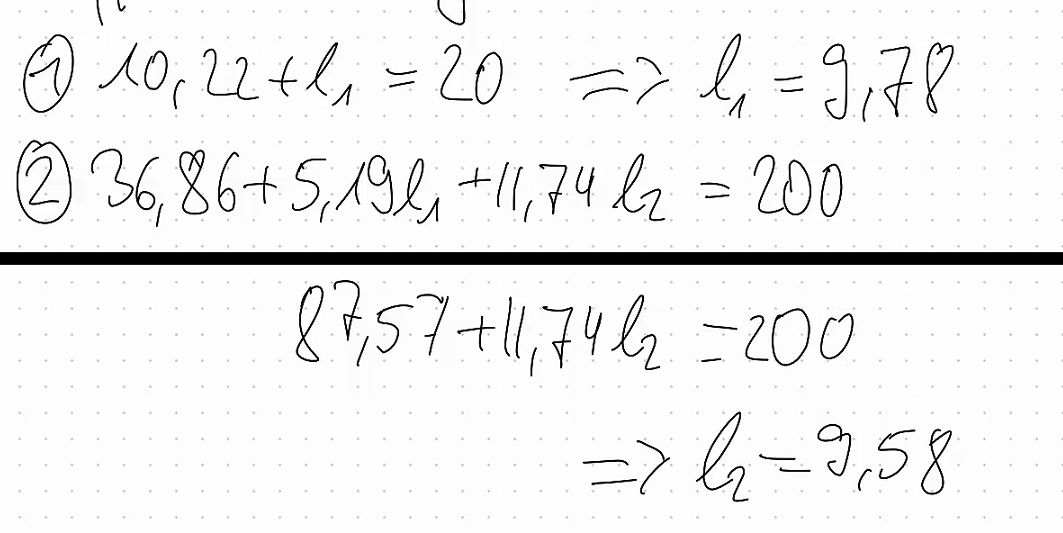 ① 10,22 + l₁ = 20 => l₁ = 9,78
② 36,86 + 5,19l₁ + 11,74 l₂ = 200
87,57 + 11,74 l₂ = 200
=> l₂ = 9,58